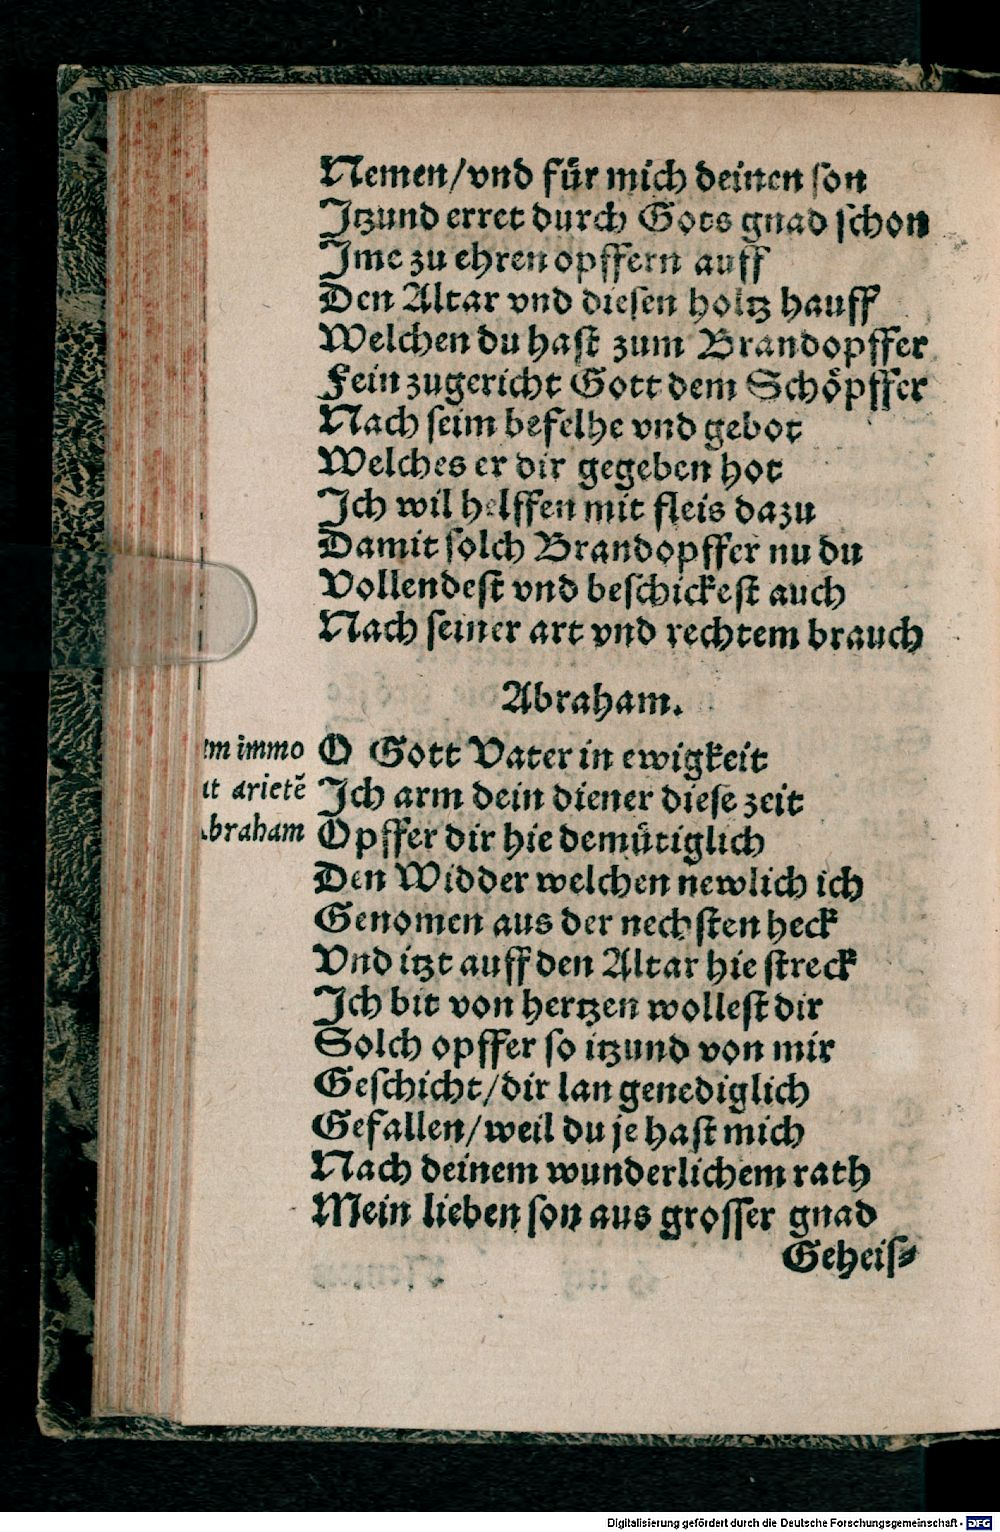 Nemen/vnd für mich deinen ſon
Itzund erret durch Gots gnad ſchon
Ime zu ehren opffern auff
Den Altar vnd dieſen holtz hauff
Welchen du haſt zum Brandopffer
Fein zugericht Gott dem Schöpffer
Nach ſeim befelhe vnd gebot
Welches er dir gegeben hot
Ich wil helffen mit fleis dazu
Damit ſolch Brandopffer nu du
Vollendeſt vnd beſchickeſt auch
Nach ſeiner art vnd rechtem brauch
Abraham.
O Gott Vater in ewigkeit
Ich arm dein diener dieſe zeit
Opffer dir hie demütiglich
Den Widder welchen newlich ich
Genomen aus der nechſten heck
Vnd itzt auff den Altar hie ſtreck
Ich bit von hertzen wolleſt dir
Solch opffer ſo itzund von mir
Geſchicht/dir lan genediglich
Gefallen/weil du je haſt mich
Nach deinem wunderlichem rath
Mein lieben ſon aus groſſer gnad
Geheiſ⸗
immo
arietē
Abraham
Digitalisierung gefördert durch die Deutsche Forschungsgemeinschaft - DFG